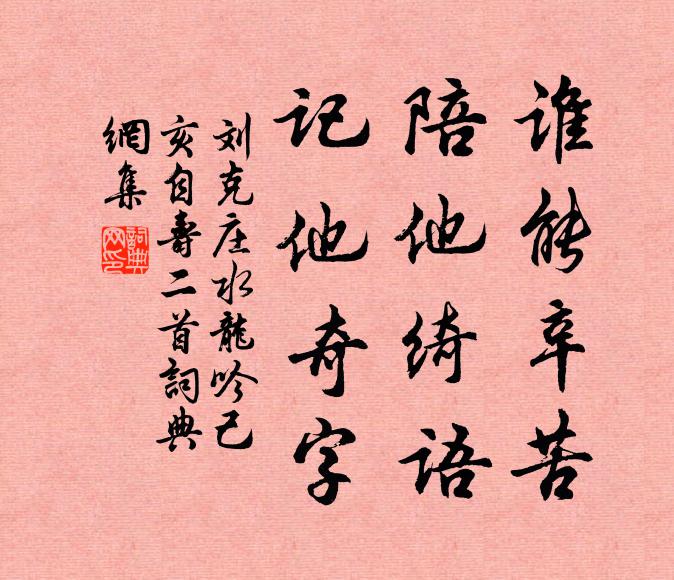 谁能辛苦
陪他绮语
记他奇字
刘克庄水龍吟己
亥自寿二首詞典
網集
詞典
网印